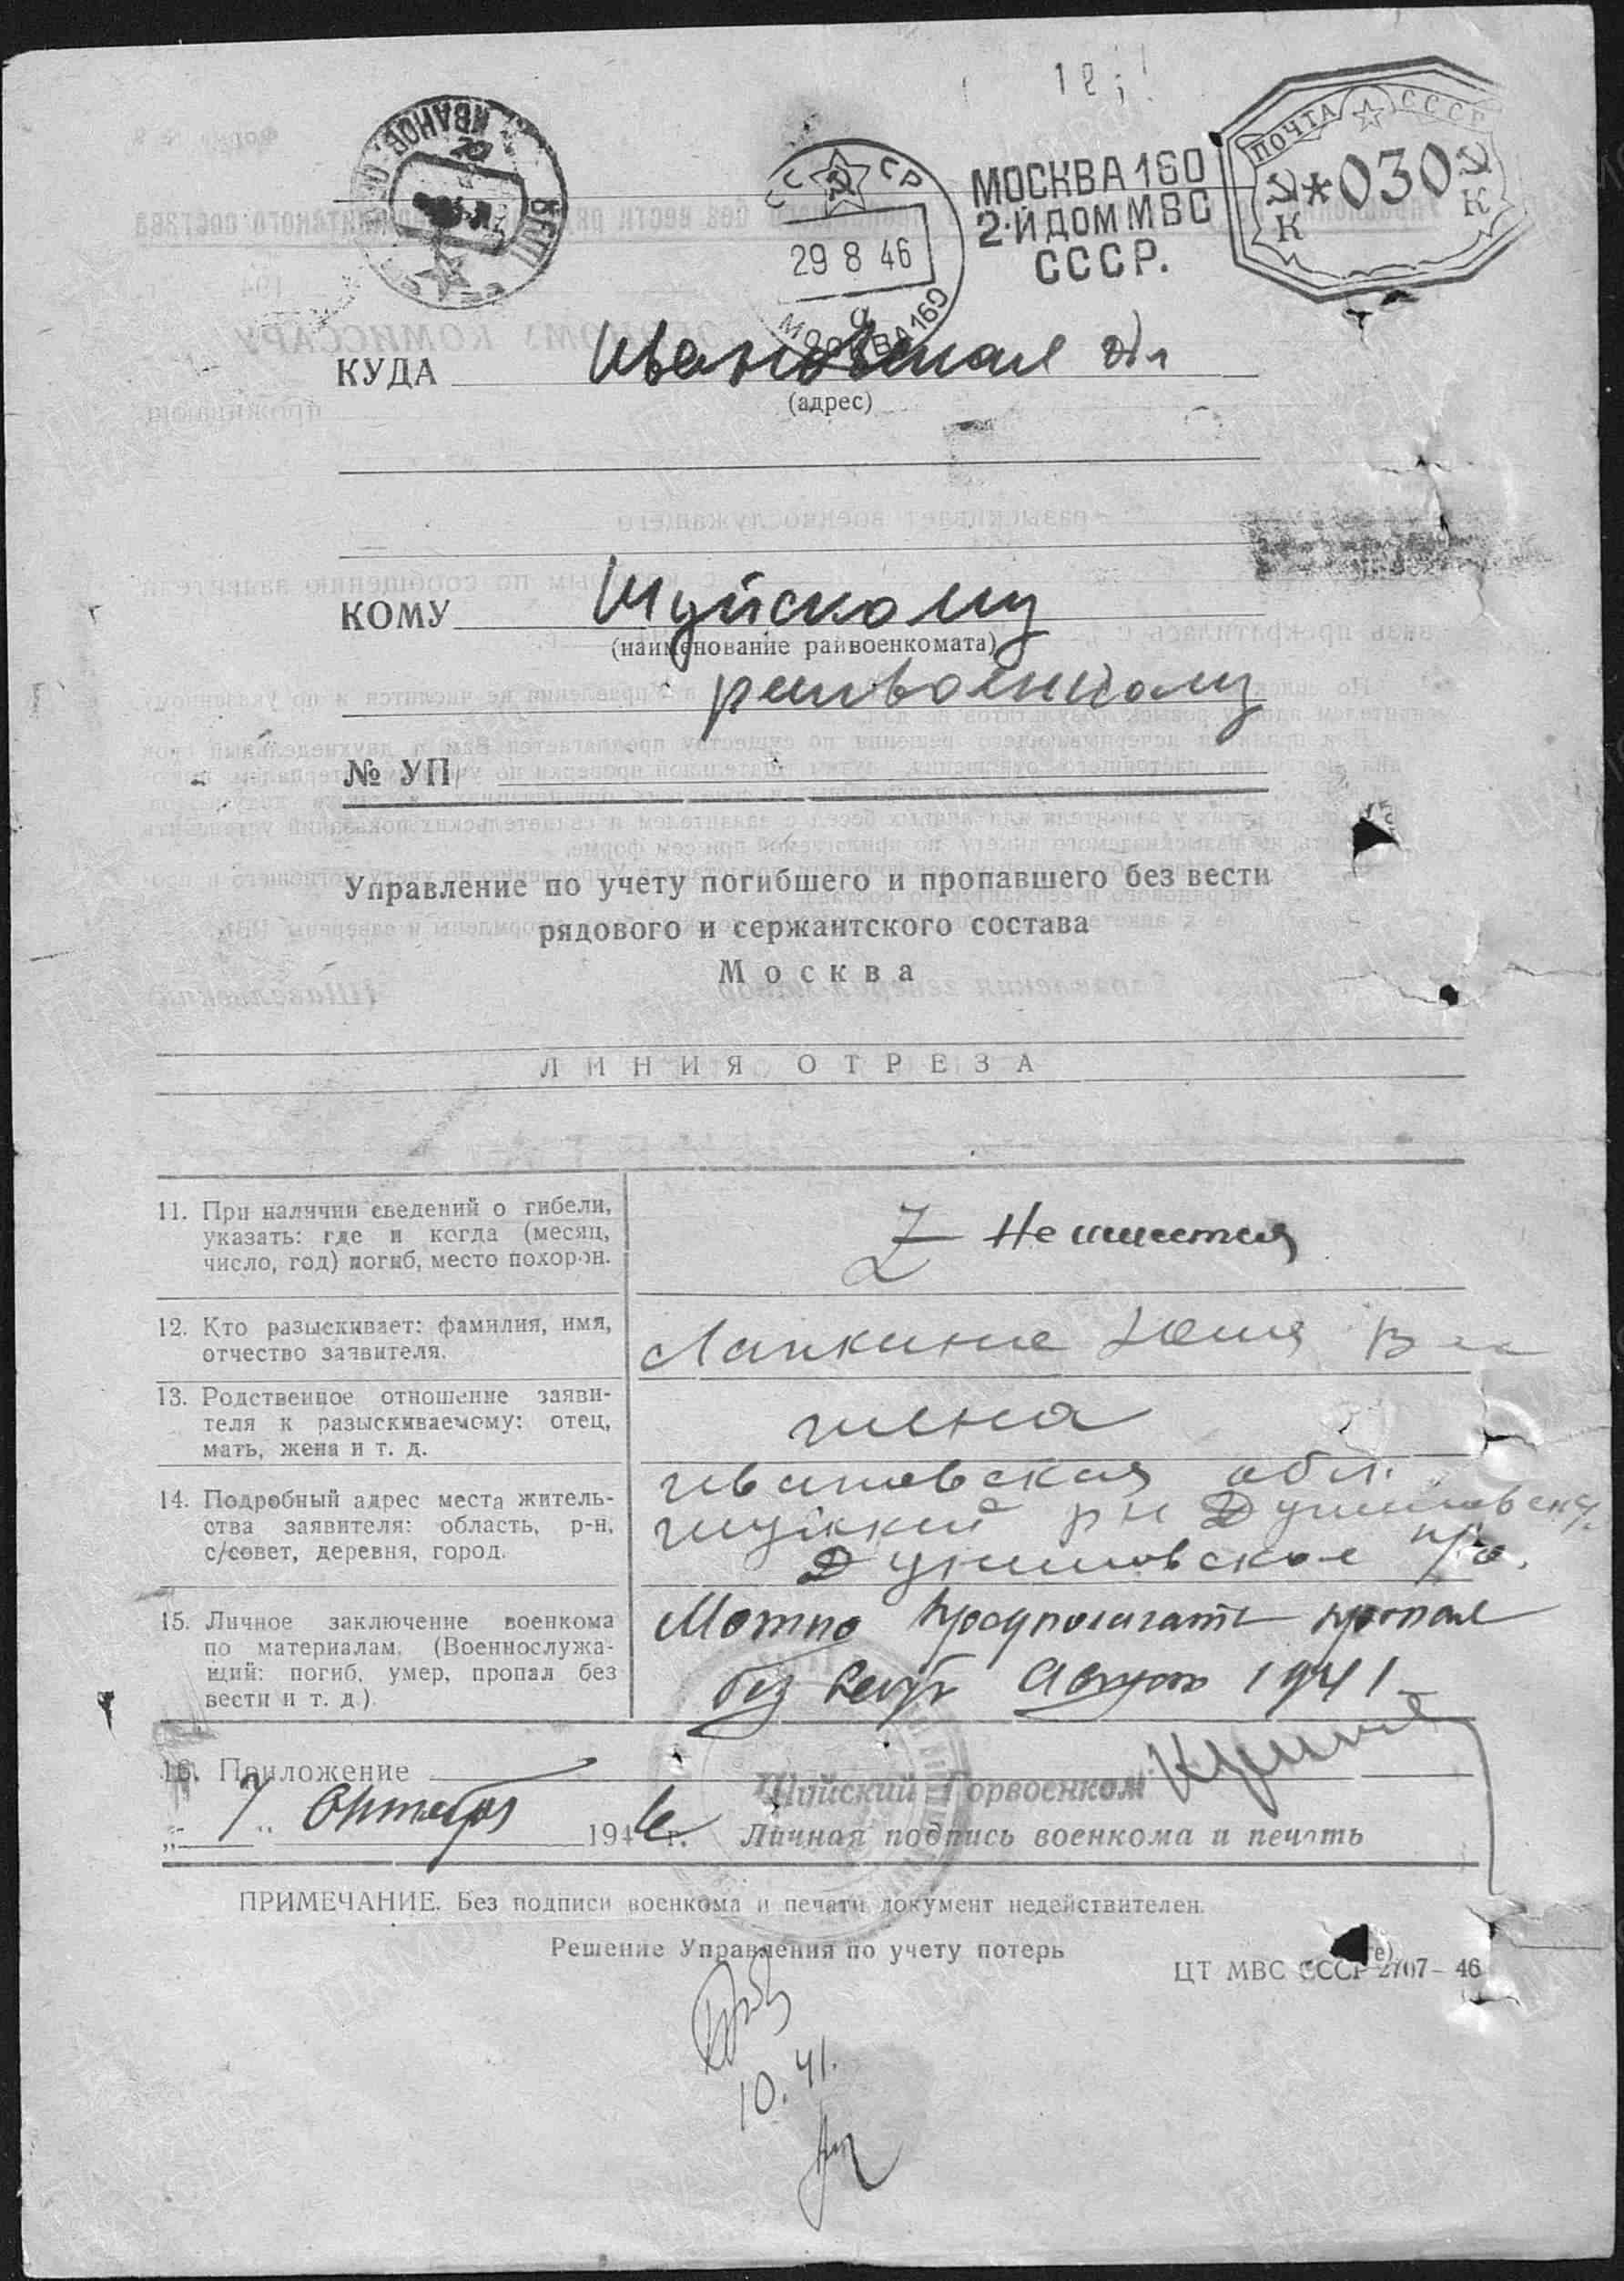 ПОЧТА СССР
*030
К К
МОСКВА 160
2-Й ДОМ МВС
СССР.
СССР
29 8 46
МОСКВА 160
КУДА Ивановская обл
(адрес)
КОМУ Шуйскому
(наименование райвоенкомата)
райвоенкому
№ УП
Управление по учету погибшего и пропавшего без вести
рядового и сержантского состава
Москва
ЛИНИЯ ОТРЕЗА
11. При наличии сведений о гибели,
указать: где и когда (месяц,
число, год) погиб, место похорон.
Не имеется
12. Кто разыскивает: фамилия, имя,
отчество заявителя.
Лапкина
13. Родственное отношение заяви-
теля к разыскиваемому: отец,
мать, жена и т. д.
жена
14. Подробный адрес места житель-
ства заявителя: область, р-н,
с/совет, деревня, город.
Ивановская обл.
Шуйский р-н Дуниловский
Дуниловское п/о.
15. Личное заключение военкома
по материалам. (Военнослужа-
щий: погиб, умер, пропал без
вести и т. д.)
Можно предполагать пропал
без вести Август 1941
16. Приложение
Шуйский Горвоенком
„ 7 " Октября 1946 г. Личная подпись военкома и печать
ПРИМЕЧАНИЕ. Без подписи военкома и печати документ недействителен.
Решение Управления по учету потерь
ЦТ МВС СССР 2707-46
10.41.